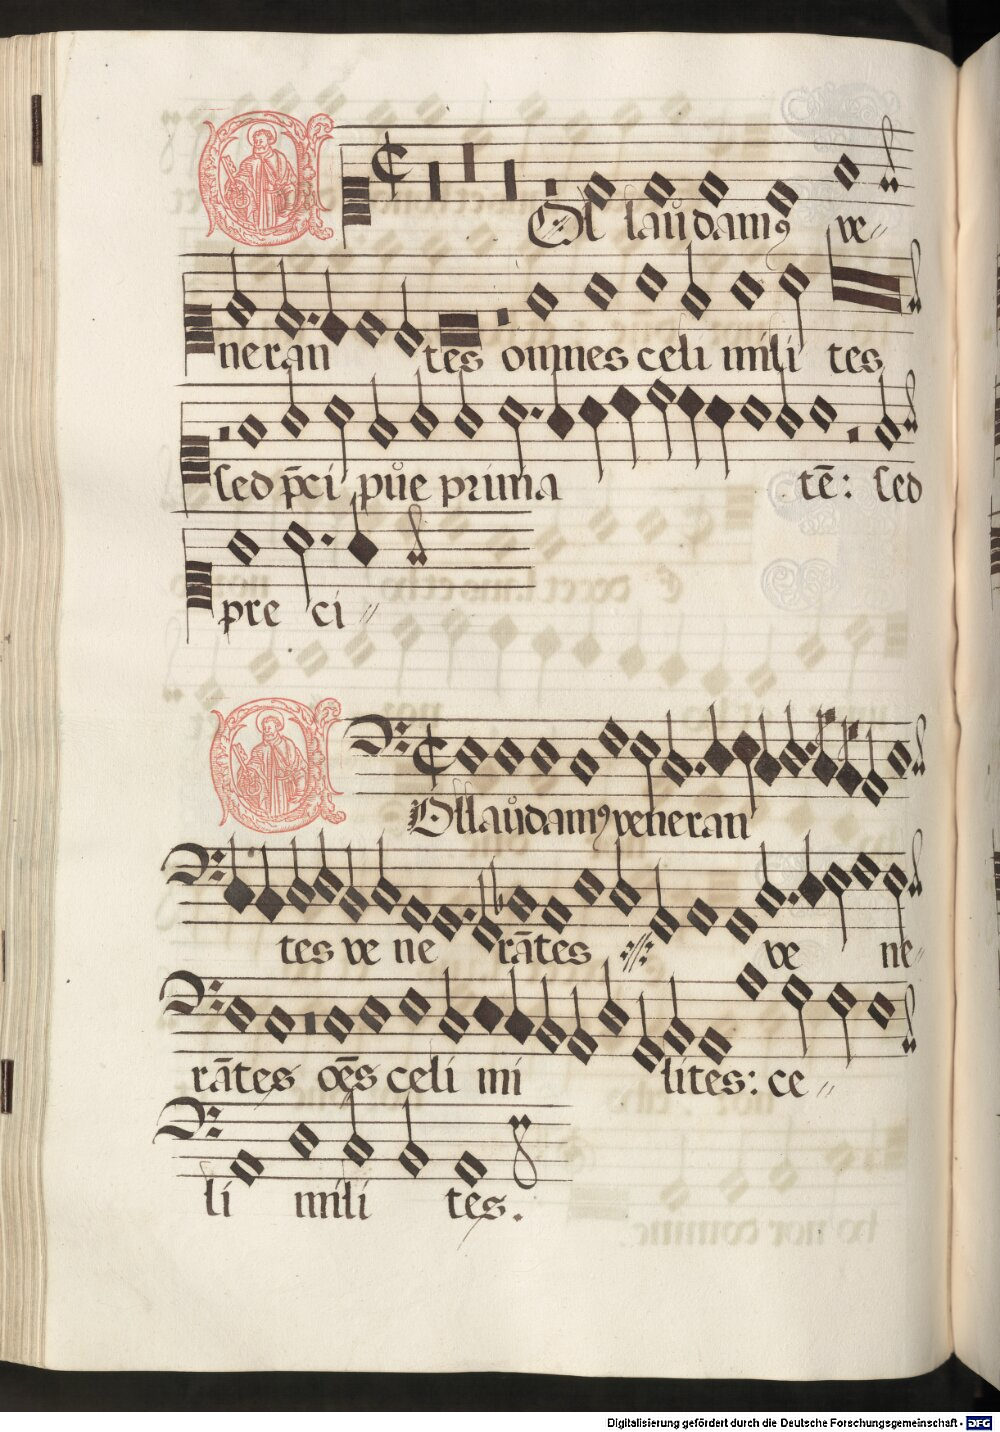 Collaudamꝯ ve
neran tes omnes celi mili tes
sed p̄ci půe prima tē: sed
pre ci
Collaůdamꝯ veneran
tes ve ne rātes ve ne
rātes oēs celi mi lites: ce
li mili tes.
Digitalisierung gefördert durch die Deutsche Forschungsgemeinschaft - DFG